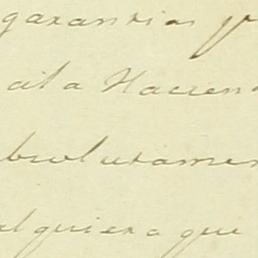 garantias p
cal a Hacien
bsolutamen
alquiera que